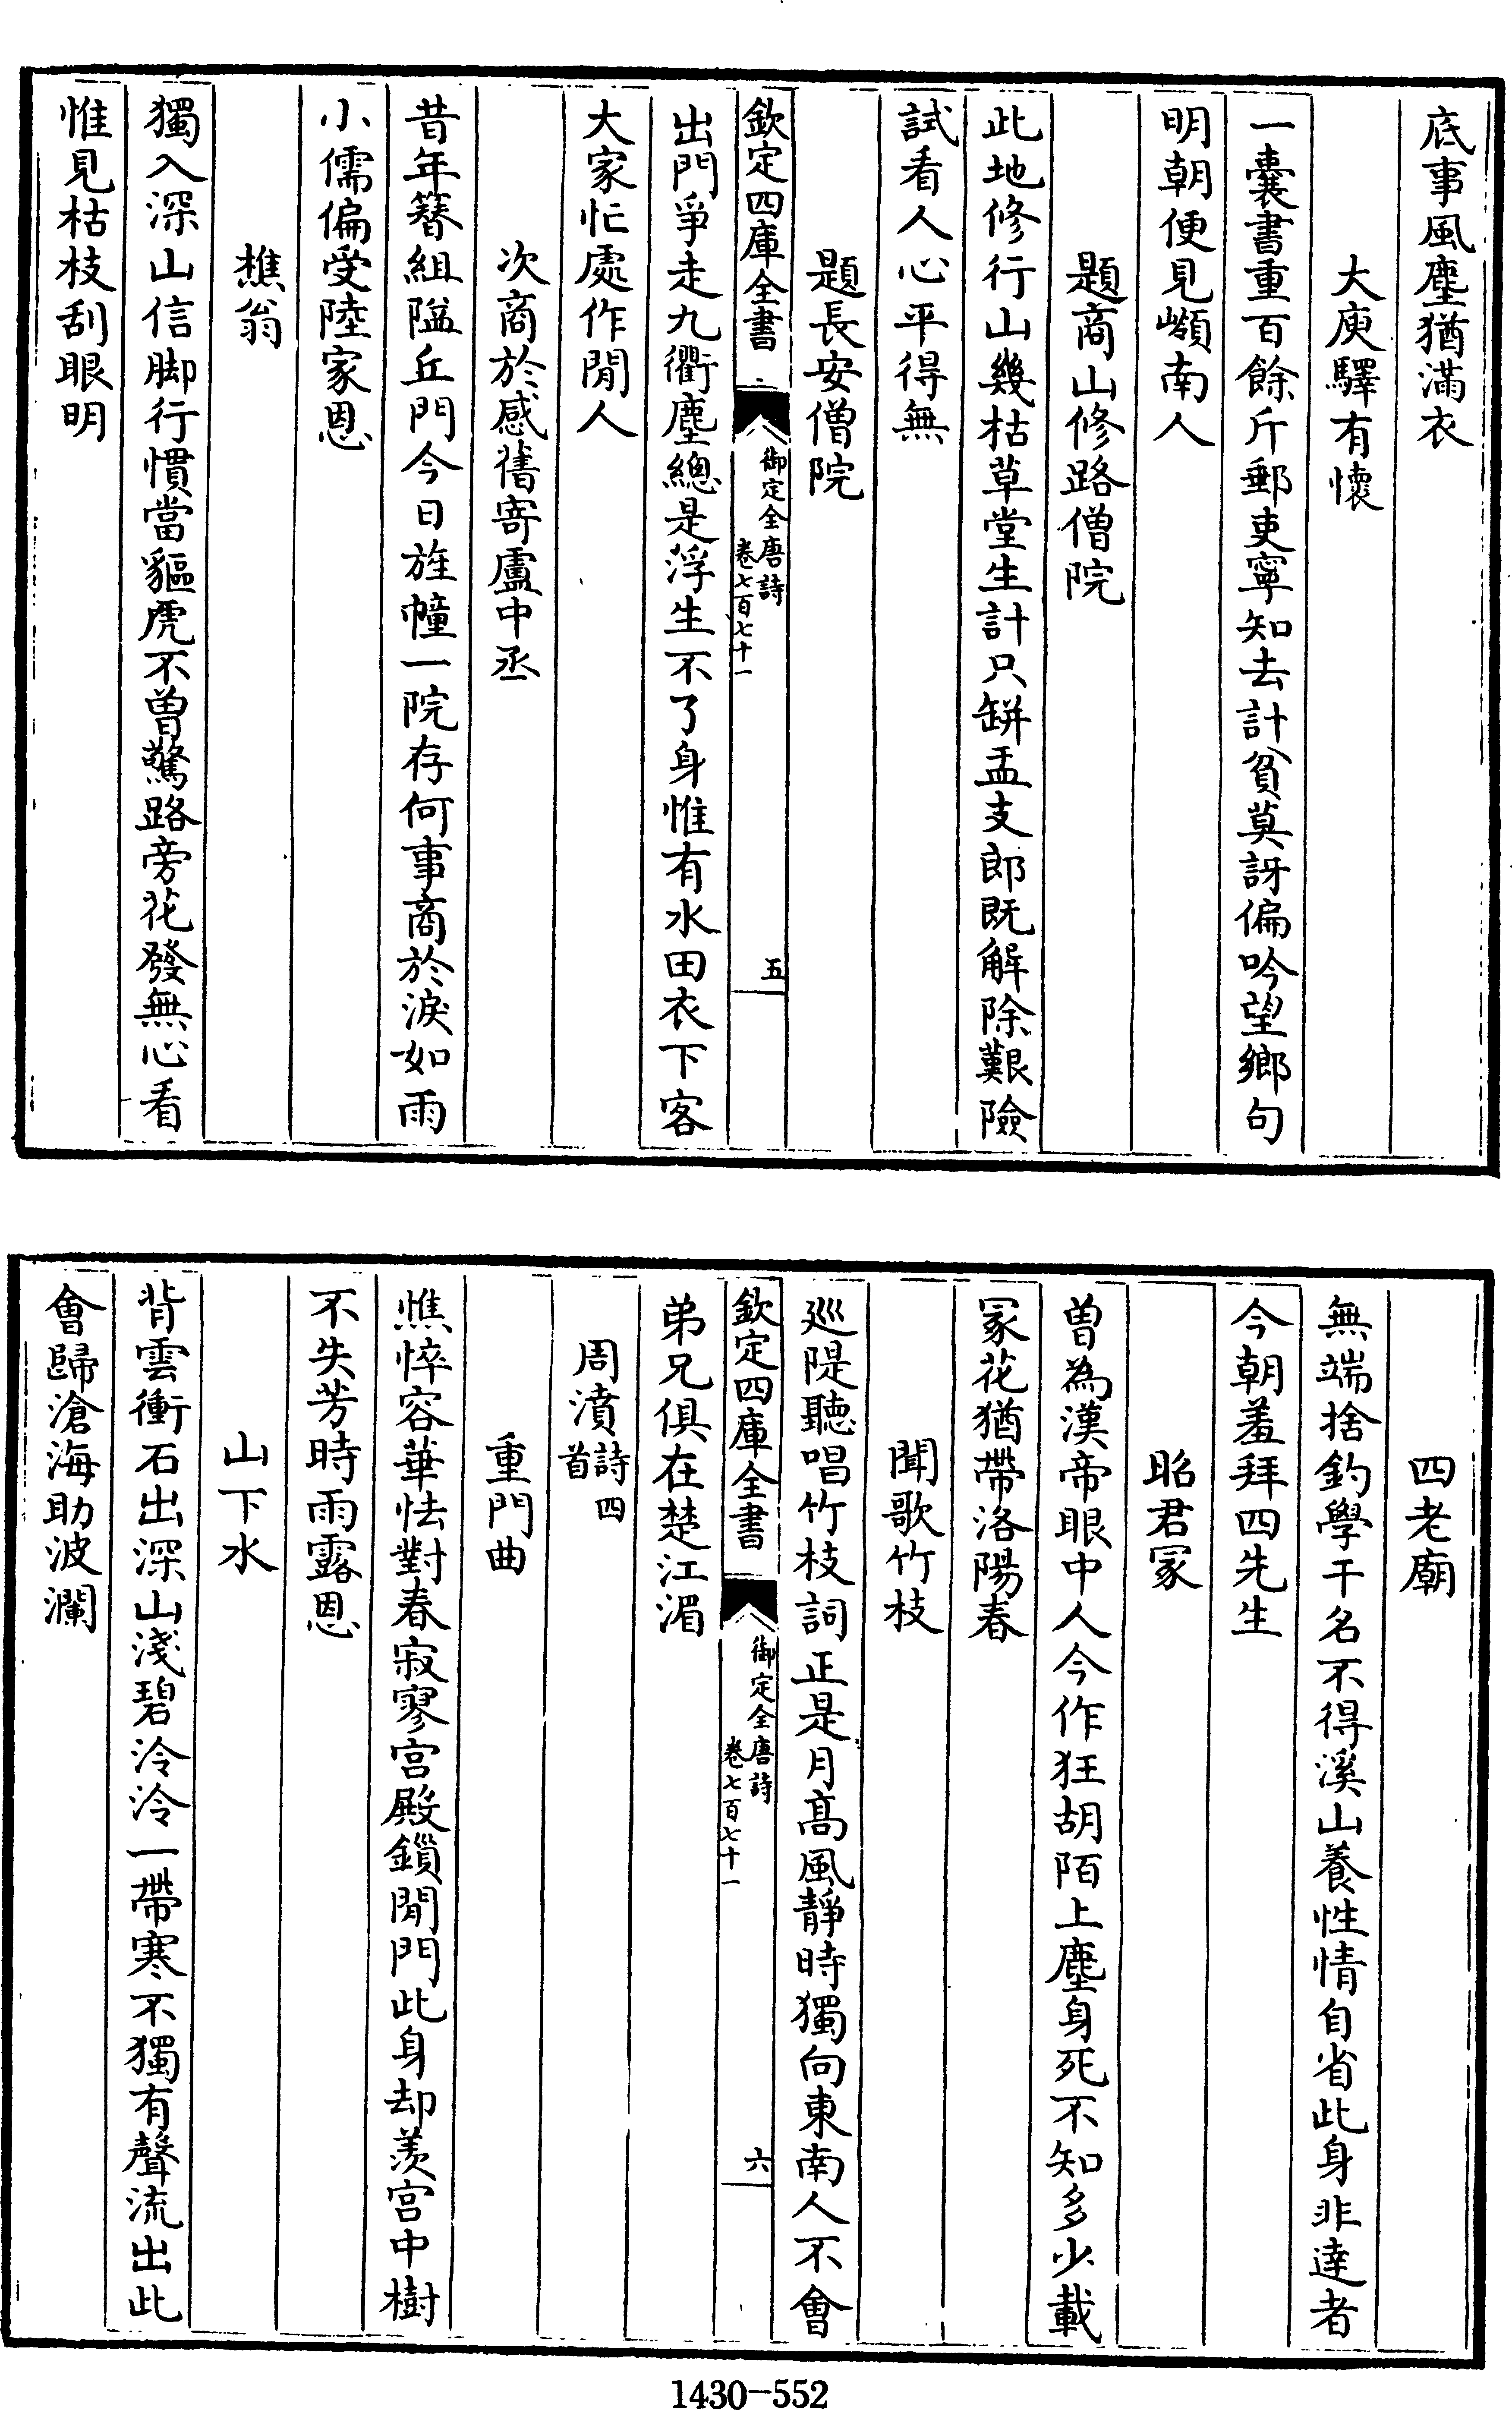 底事風塵猶滿衣
大庾驛有懷
一囊書重百餘斤郵吏寧知去計貧莫訝偏吟望鄉句
明朝便見嶺南人
題商山修路僧院
此地修行山幾枯草堂生計只缾盂支郎既解除艱險
試看人心平得無
題長安僧院
欽定四庫全書
御定全唐詩
卷七百七十一
五
出門爭走九衢塵總是浮生不了身惟有水田衣下客
大家忙處作閒人
次商於感舊寄盧中丞
昔年簪組隘丘門今日旌幢一院存何事商於淚如雨
小儒偏受陸家恩
樵翁
獨入深山信脚行慣當貙虎不曾驚路旁花發無心看
惟見枯枝刮眼明
四老廟
無端捨釣學干名不得溪山養性情自省此身非達者
今朝羞拜四先生
昭君冢
曽為漢帝眼中人今作狂胡陌上塵身死不知多少載
冢花猶帶洛陽春
聞歌竹枝
廵隄聽唱竹枝詞正是月髙風靜時獨向東南人不會
弟兄俱在楚江湄
欽定四庫全書
御定全唐詩
卷七百七十一
六
周濆詩四首
重門曲
憔悴容華怯對春寂寥宫殿鎻閒門此身却羨宫中樹
不失芳時雨露恩
山下水
背雲衝石出深山淺碧泠泠一帶寒不獨有聲流出此
會歸滄海助波瀾
1430-552